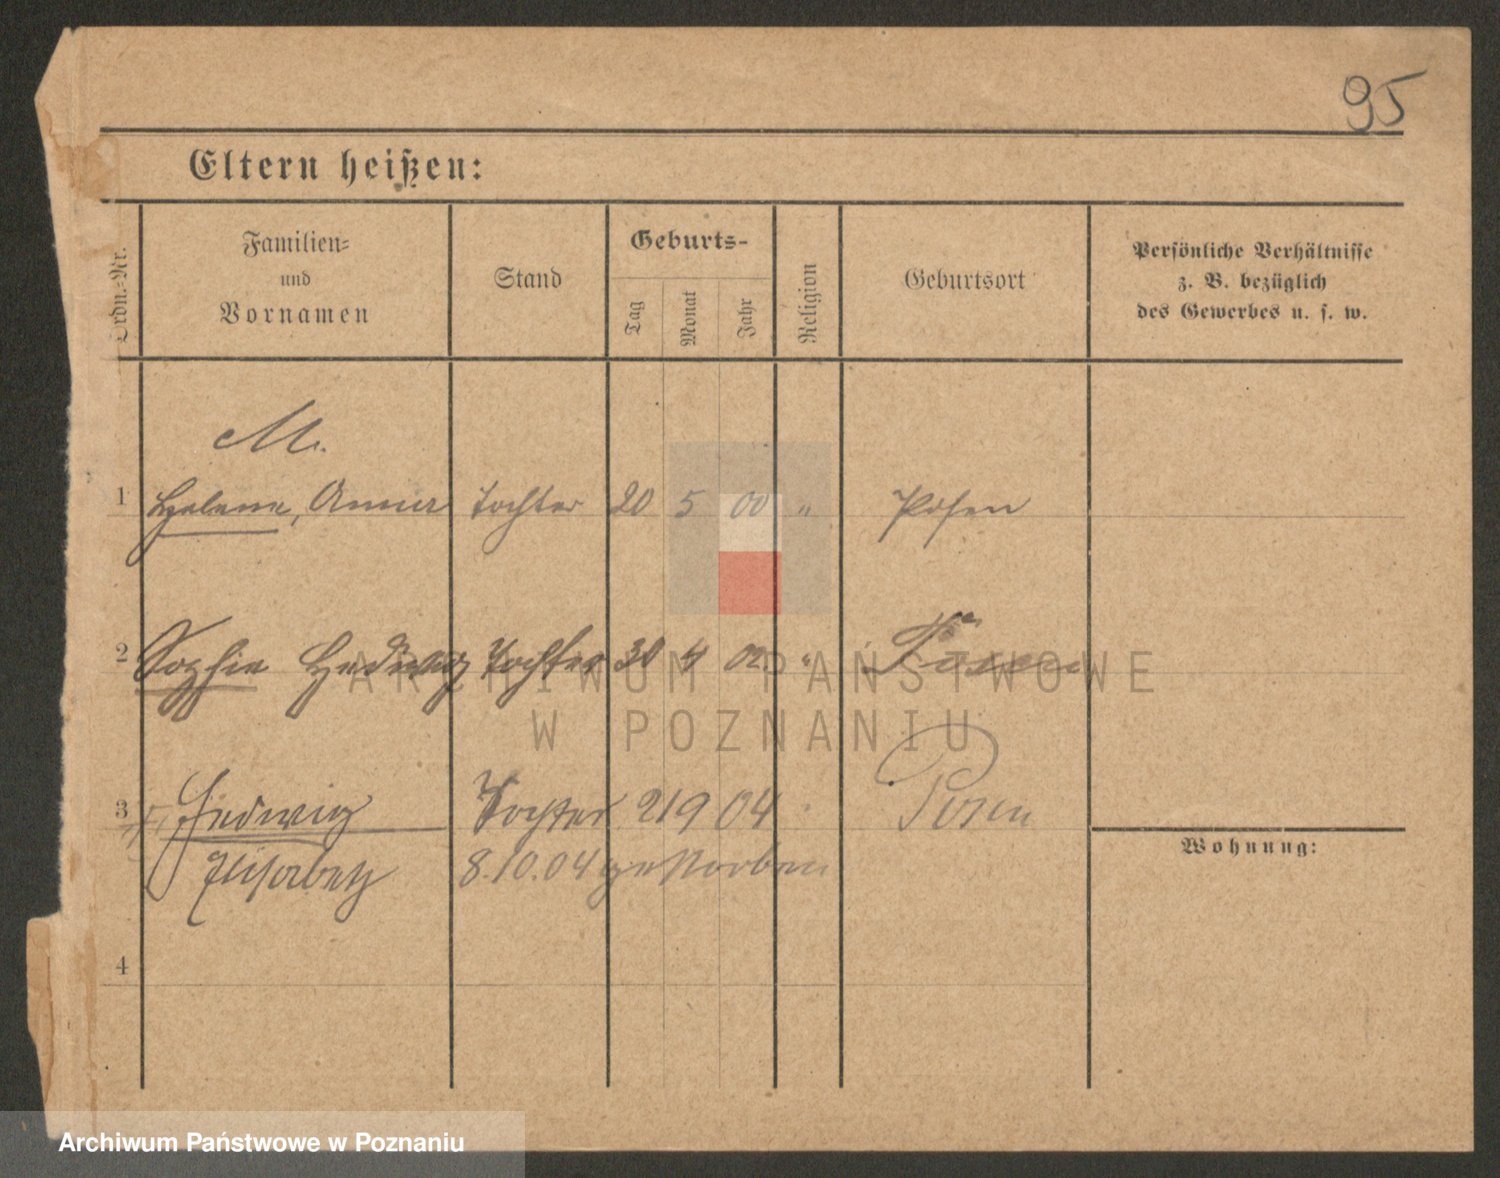 95
Eltern heißen:
Ordn.=Nr.
Familien=
und
Vornamen
Stand
Geburts=
Tag
Monat
Jahr
Religion
Geburtsort
Persönliche Verhältnisse
z. B. bezüglich
des Gewerbes u. s. w.
M.
1 Helene, Anna Tochter 20 5 00 " Posen
2 Sophie Hedwig Tochter 30 4 02. " Posen
ARCHIWUM PAŃSTWOWE
W POZNANIU
3 Hedwig Tochter 21 9 04 " Posen
Elisabeth 8.10.04 gestorben
Wohnung:
4
Archiwum Państwowe w Poznaniu